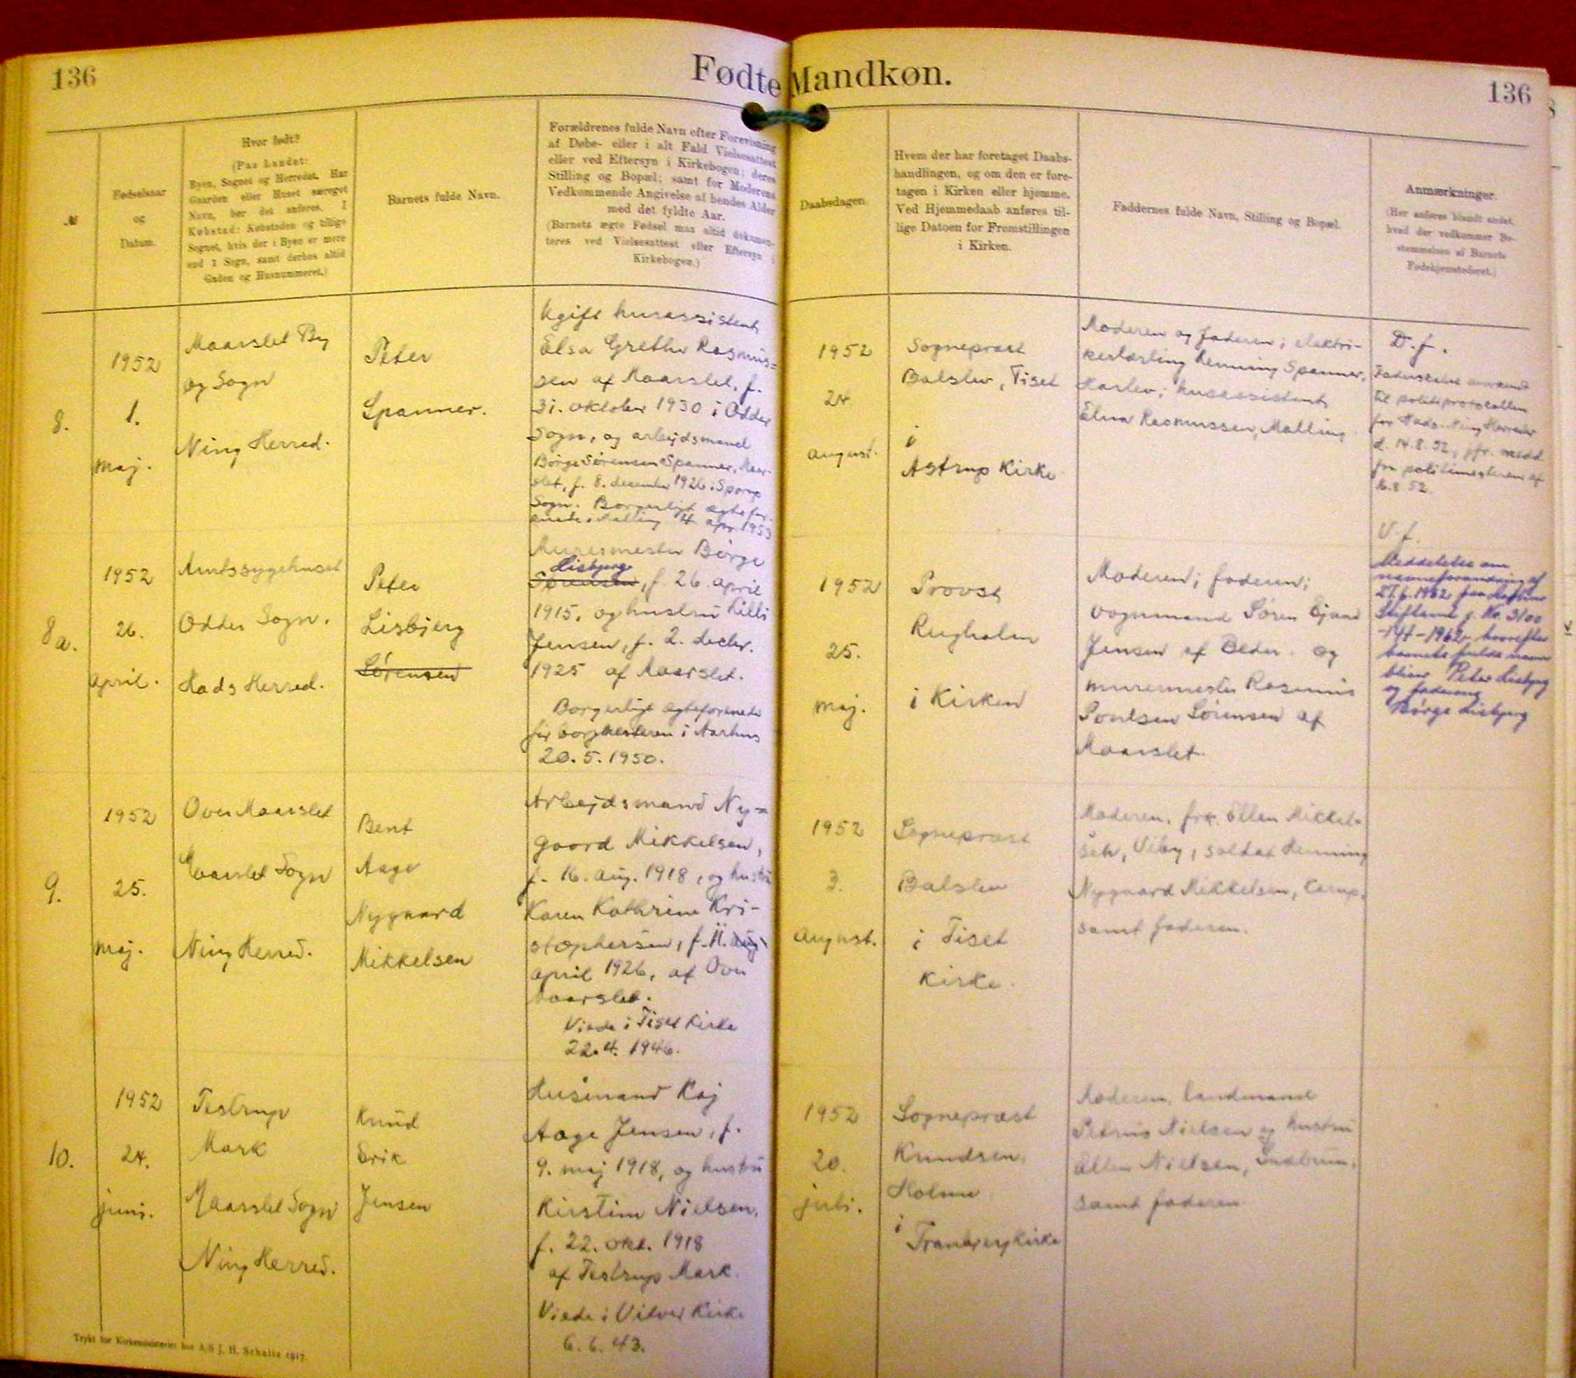 136
Fødte Mandkøn.
136
№
Fødselsaar
og
Datum.
Hvor født?
(Paa Landet:
Byen, Sognet og Herredet. Har
Gaarden eller Huset særeget
Navn, bør det anføres. I
Købstad: Købstaden og tillige
Sognet, hvis der i Byen er mere
end 1 Sogn, samt derhos altid
Gaden og Husnummeret.)
Barnets fulde Navn.
Forældrenes fulde Navn efter Forevisning
af Døbe- eller i alt Fald Vielsesattest
eller ved Eftersyn i Kirkebogen; deres
Stilling og Bopæl; samt for Moderens
Vedkommende Angivelse af hendes Alder
med det fyldte Aar.
(Barnets ægte Fødsel maa altid dokumen-
teres ved Vielsesattest eller Eftersyn i
Kirkebogen.)
Daabsdagen.
Hvem der har foretaget Daabs-
handlingen, og om den er fore-
tagen i Kirken eller hjemme.
Ved Hjemmedaab anføres til-
lige Datoen for Fremstillingen
i Kirken.
Faddernes fulde Navn, Stilling og Bopæl.
Anmærkninger.
(Her anføres blandt andet,
hvad der vedkommer Be-
stemmelsen af Barnets
Fødehjemstedsret.)
8.
1952
1.
maj.
Maarslet By
og Sogn
Ning Herred.
Peter
Spanner.
Ugift husassistent
Elsa Grethe Rasmus=
sen af Maarslet, f.
31. oktober 1930 i Odder
Sogn, og arbejdsmand
Børge Sørensen Spanner, Maar-
slet, f. 8. december 1926 i Sporup
Sogn. Borgerligt ægtefor-
enede i Malling 4. apr. 1953
1952
24.
august.
Sognepræst
Balslev, Tiset
i
Astrup Kirke
Moderen og faderen; elektri-
kerlærling Henning Spanner,
Harlev; husassistent
Elna Rasmussen, Malling
D. f.
til politiprotokollen
for Hads-Ning Herreder
d. 14.8.52, jfr. medd.
fra politimesteren af
8 52.
8a.
1952
26.
april.
Amtssygehuset
Odder Sogn.
Hads Herred.
Peter
Lisbjerg
Sørensen
Muremester Børge
Lisbjerg
Sørensen, f. 26. april
1915, og hustru Lilli
Jensen, f. 2. decbr.
1925 af Maarslet.
Borgerligt ægteforenede
for borgmesteren i Aarhus
20.5.1950.
1952
25.
maj.
Provst
Rugholm
i Kirken
Moderen; faderen;
vognmand Søren Ejvind
Jensen af Beder og
muremester Rasmus
Poulsen Sørensen af
Maarslet.
V. f.
Meddelelse om
navneforandring af
27.6.1962 fra Aarhus
Stiftamt j. Nr. 3100
-144-1962, hvorefter
barnets fulde navn
bliver Peter Lisbjerg
og faderens
Børge Lisbjerg
9.
1952
25.
maj.
Over Maarslet
Maarslet Sogn
Ning Herred.
Bent
Aage
Nygaard
Mikkelsen
Arbejdsmand Ny=
gaard Mikkelsen,
f. 16. aug. 1918, og hustru
Karen Kathrine Kri-
stophersen, f. 11. aug.
april 1926, af Over
Maarslet.
Viede i Tiset Kirke
22.4. 1946.
1952
3.
august.
Sognepræst
Balslev
i Tiset
Kirke.
Moderen, frk. Ellen Mikkel-
sen, Viby, soldat Henning
Nygaard Mikkelsen, Karup,
samt faderen.
10.
1952
24.
juni.
Testrup
Mark
Maarslet Sogn
Ning Herred.
Knud
Erik
Jensen
Husmand Kaj
Aage Jensen, f.
9. maj 1918, og hustru
Kirstine Nielsen,
f. 22. okt. 1918
af Testrup Mark.
Viede i Vitved Kirke
6.6.43.
1952
20.
juli.
Sognepræst
Knudsen,
Holme
i
Tranbjerg Kirke
Moderen, landmand
Petrus Nielsen og hustru
Ellen Nielsen,
samt faderen
Trykt for Kirkeministeriet hos A/S J. H. Schultz 1917.